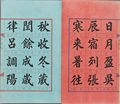 日月盈昃
辰宿列張
寒来暑往
秋收冬蔵
閏餘成歲
律呂調陽